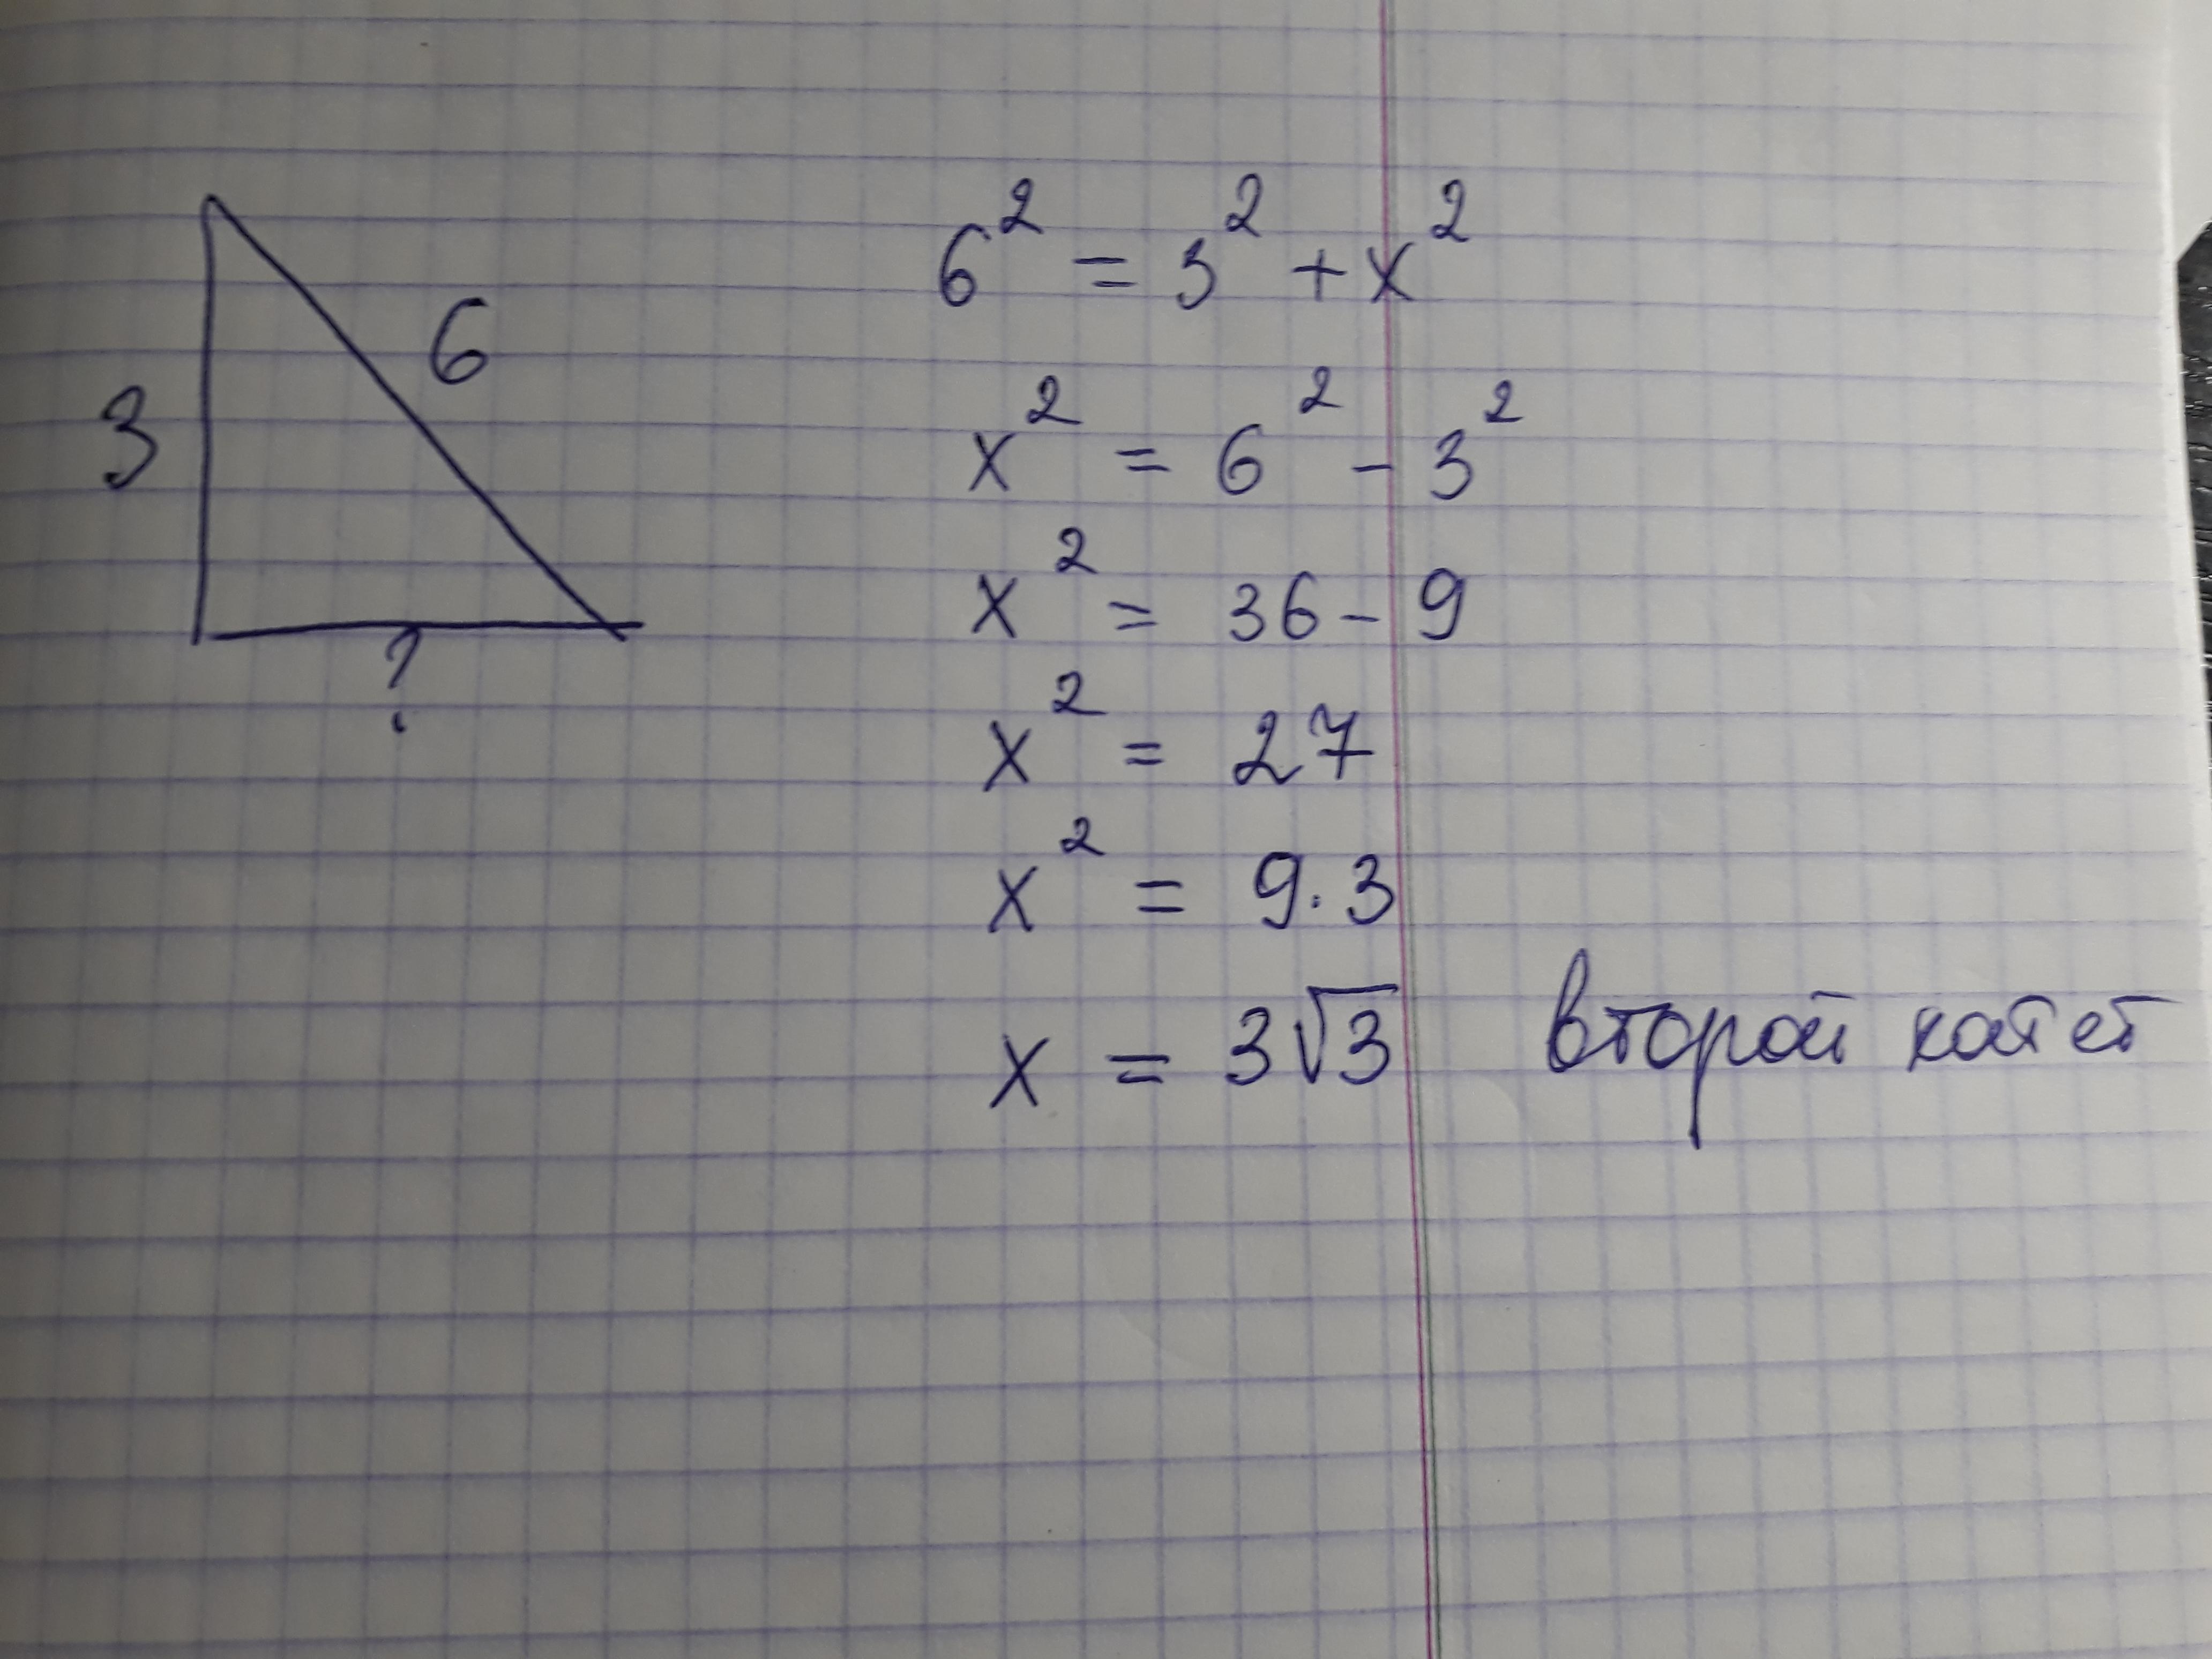 3
6
?
6² = 3² + x²
x² = 6² - 3²
x² = 36 - 9
x² = 27
x² = 9·3
x = 3√3 второй катет